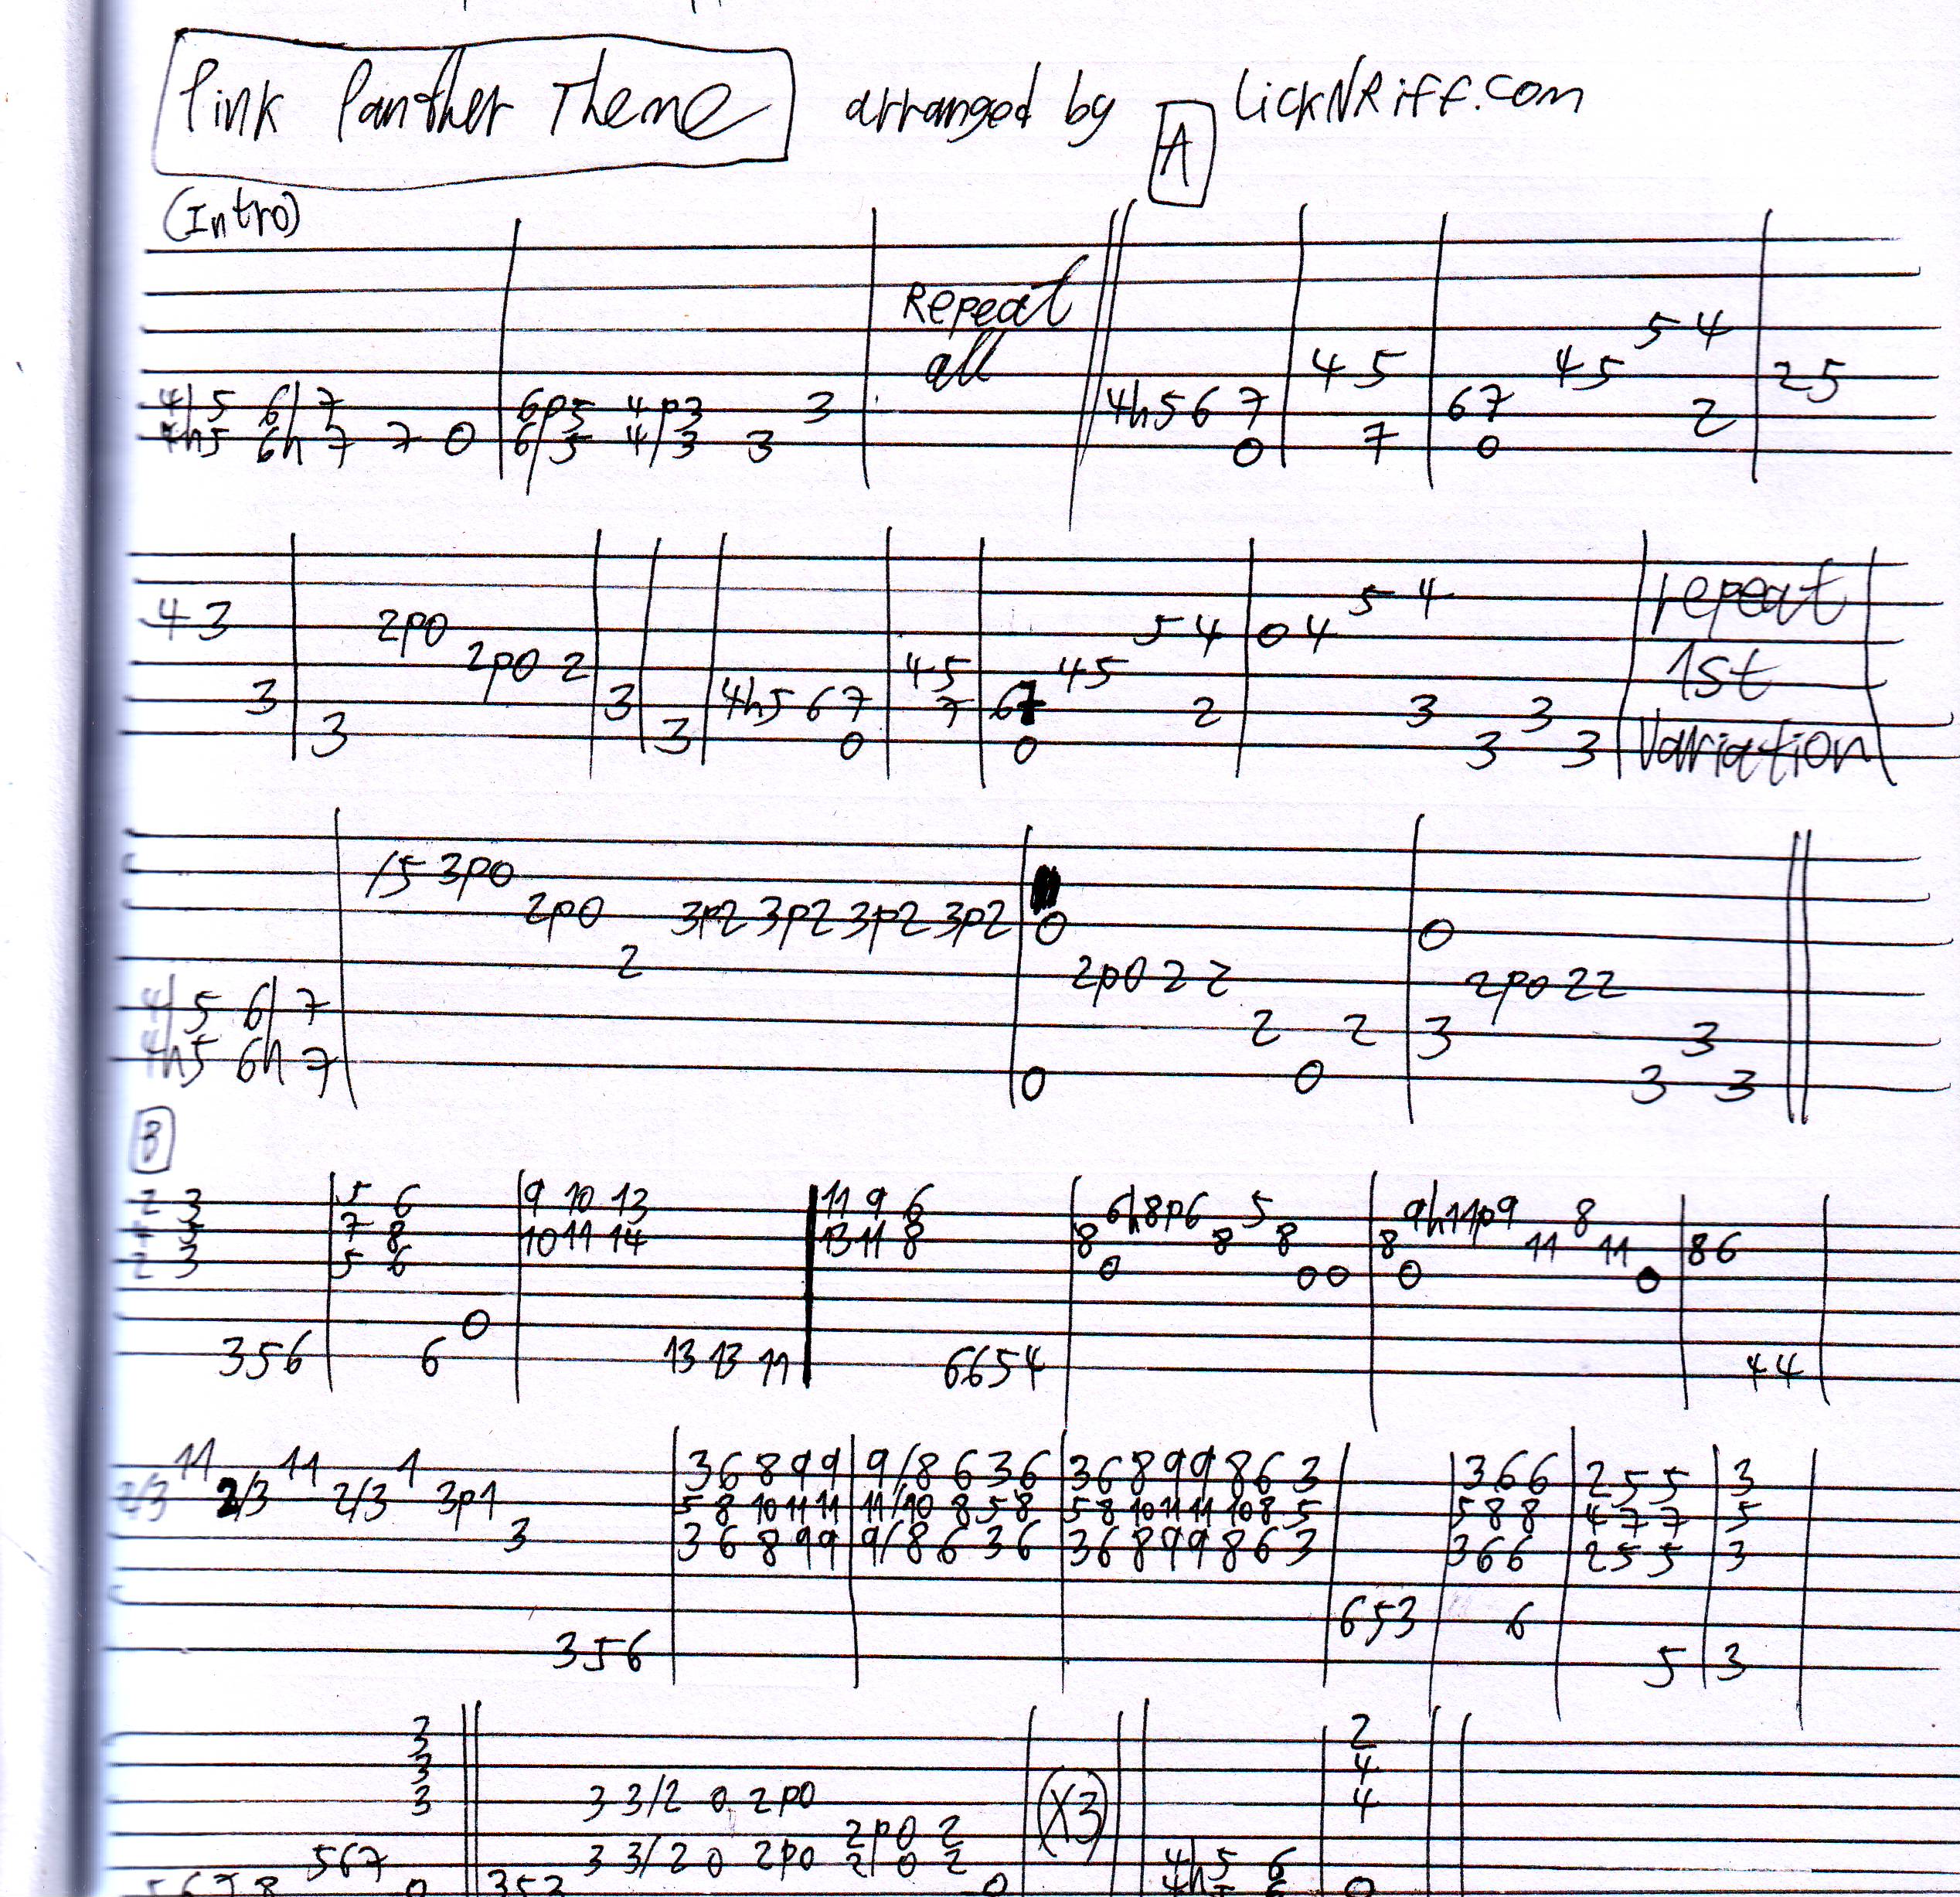 Pink Panther Theme arranged by LickNRiff.com
A
(Intro)
5 4
Repeat all
4 5 4 5 2 5
4/5 6/7 6p5 4p3 3 4h5 6 7 6 7 2
4h5 6h7 7 0 6/5 4/3 3 0 7 0
5 4 repeat
4 3 2p0 5 4 0 4
2p0 2 4 5 4 5 1st
3 3 4h5 6 7 7 6 7 2 3 3
3 3 0 0 3 3 Variation
/5 3p0
2p0 3p2 3p2 3p2 3p2 0 0
2 2p0 2 2 2p0 2 2
4/5 6/7 2 2 3 3
4h5 6h7 0 0 3 3
B
2 3 5 6 9 10 13 11 9 6 6h8p6 5 9h11p9 8
3 7 8 10 11 14 13 11 8 8 8 8 8 11 11 8 6
2 3 5 6 0 0 0 0 0
0
3 5 6 6 13 13 11 6 6 5 4 4 4
11 11 1 3 6 8 9 9 9/8 6 3 6 3 6 8 9 9 8 6 3 3 6 6 2 5 5 3
2/3 2/3 2/3 3p1 5 8 10 11 11 11/10 8 5 8 5 8 10 11 11 10 8 5 5 8 8 4 7 7 5
3 3 6 8 9 9 9/8 6 3 6 3 6 8 9 9 8 6 3 3 6 6 2 5 5 3
6 5 3 6
3 5 6 5 3
3 2
3 4
3 3 3/2 0 2p0 (X3) 4
3 3/2 0 2p0 2p0 2
5 6 7 2/0 2 4/5 6
5 6 7 8 0 3 5 3 0 4h5 6 0